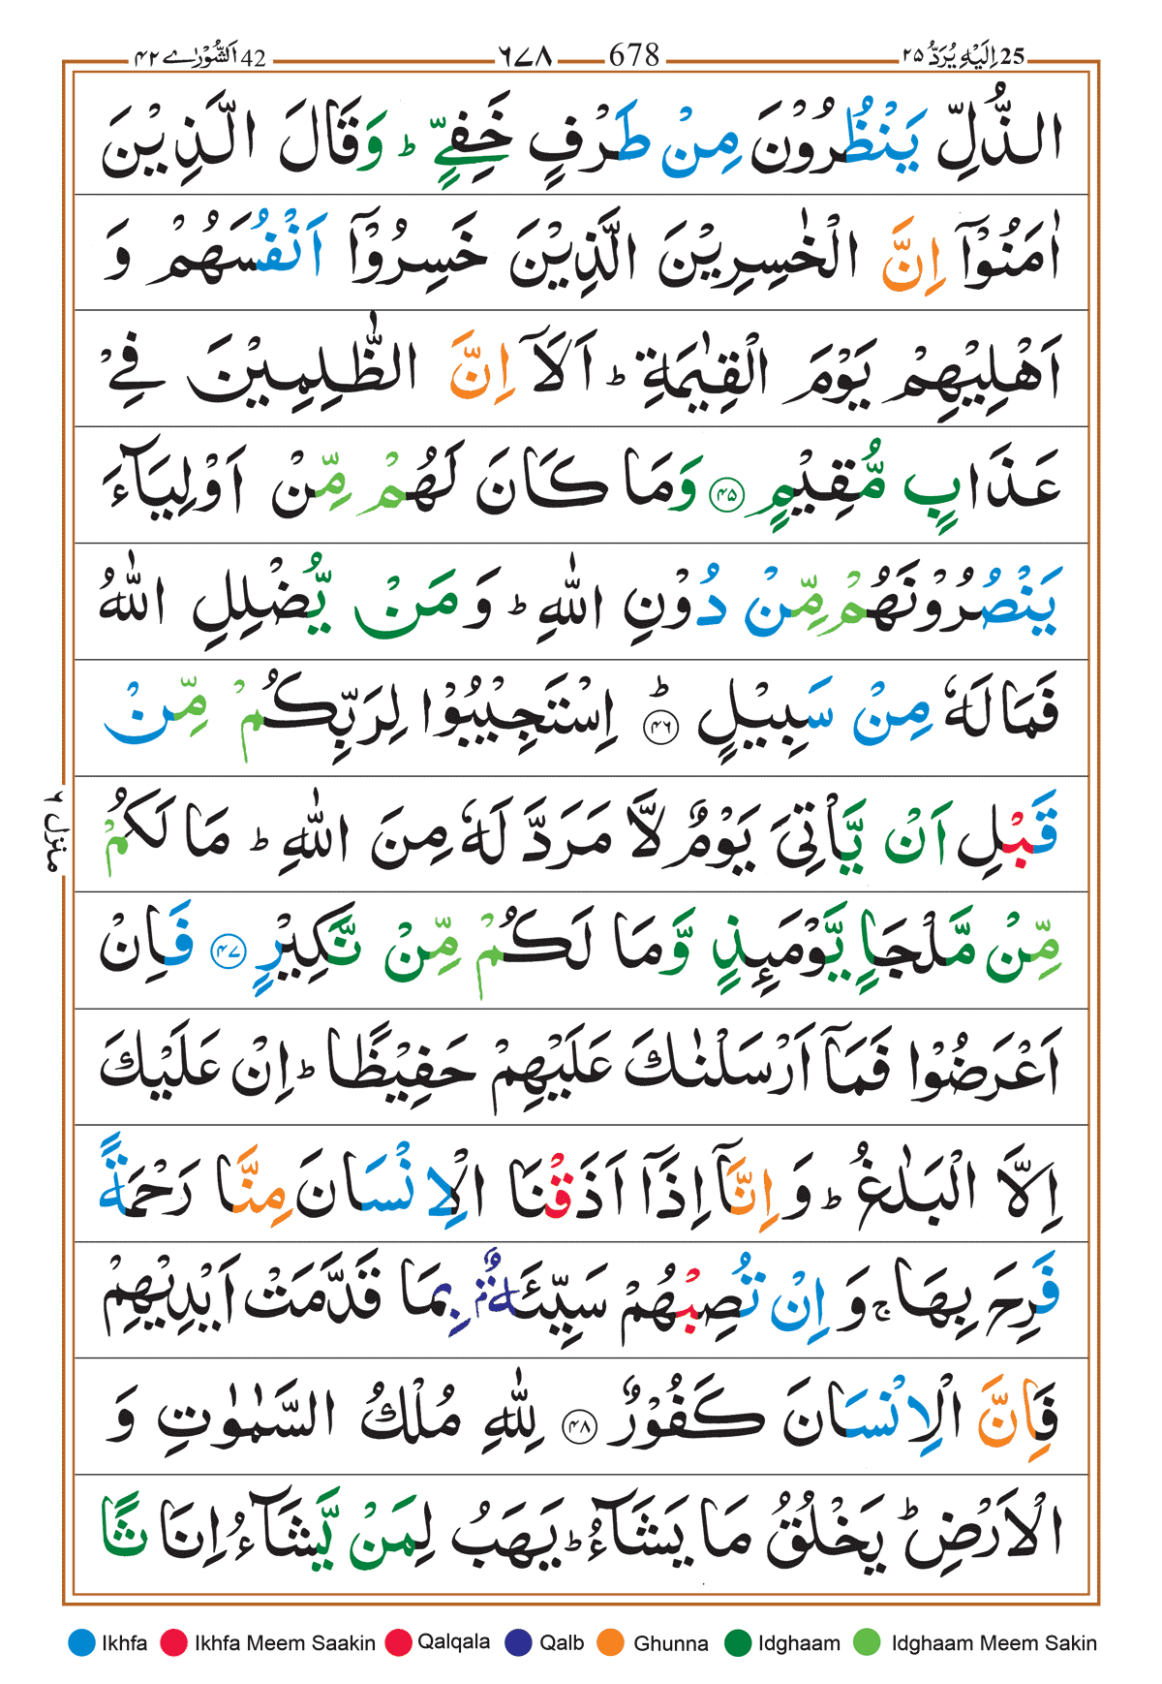 25 اِلَيْهِ يُرَدُّ ٢٥ 678 ٦٧٨ 42 اَلشُّوْرٰى ٤٢
الذُّلِّ يَنْظُرُوْنَ مِنْ طَرْفٍ خَفِيٍّ ؕ وَقَالَ الَّذِيْنَ
اٰمَنُوْۤا اِنَّ الْخٰسِرِيْنَ الَّذِيْنَ خَسِرُوْۤا اَنْفُسَهُمْ وَ
اَهْلِيْهِمْ يَوْمَ الْقِيٰمَةِ ؕ اَلَاۤ اِنَّ الظّٰلِمِيْنَ فِيْ
عَذَابٍ مُّقِيْمٍ ۝٤٥ وَمَا كَانَ لَهُمْ مِّنْ اَوْلِيَآءَ
يَنْصُرُوْنَهُمْ مِّنْ دُوْنِ اللّٰهِ ؕ وَمَنْ يُّضْلِلِ اللّٰهُ
فَمَا لَهٗ مِنْ سَبِيْلٍ ؕ ۝٤٦ اِسْتَجِيْبُوْا لِرَبِّكُمْ مِّنْ
قَبْلِ اَنْ يَّاْتِيَ يَوْمٌ لَّا مَرَدَّ لَهٗ مِنَ اللّٰهِ ؕ مَا لَكُمْ
مِّنْ مَّلْجَاٍ يَّوْمَىِٕذٍ وَّمَا لَكُمْ مِّنْ نَّكِيْرٍ ۝٤٧ فَاِنْ
اَعْرَضُوْا فَمَاۤ اَرْسَلْنٰكَ عَلَيْهِمْ حَفِيْظًا ؕ اِنْ عَلَيْكَ
اِلَّا الْبَلٰغُ ؕ وَ اِنَّاۤ اِذَاۤ اَذَقْنَا الْاِنْسَانَ مِنَّا رَحْمَةً
فَرِحَ بِهَا ۚ وَ اِنْ تُصِبْهُمْ سَيِّئَةٌۢ بِمَا قَدَّمَتْ اَيْدِيْهِمْ
فَاِنَّ الْاِنْسَانَ كَفُوْرٌ ۝٤٨ لِلّٰهِ مُلْكُ السَّمٰوٰتِ وَ
الْاَرْضِ ؕ يَخْلُقُ مَا يَشَآءُ ؕ يَهَبُ لِمَنْ يَّشَآءُ اِنَاثًا
منزل ٦
Ikhfa Ikhfa Meem Saakin Qalqala Qalb Ghunna Idghaam Idghaam Meem Sakin